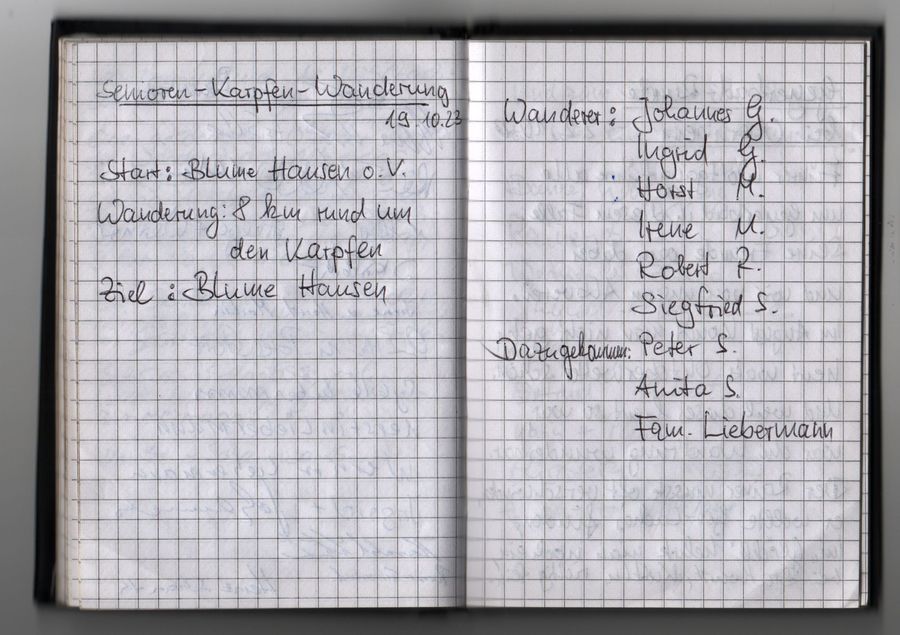 Senioren-Karpfen-Wanderung
19.10.23
Start: Blume Hausen o.V.
Wanderung: 8 km rund um
den Karpfen
Ziel : Blume Hausen
Wanderer: Johannes G.
Ingrid G.
Horst M.
Irene M.
Robert R.
Siegfried S.
Dazugekommen: Peter S.
Anita S.
Fam. Liebermann